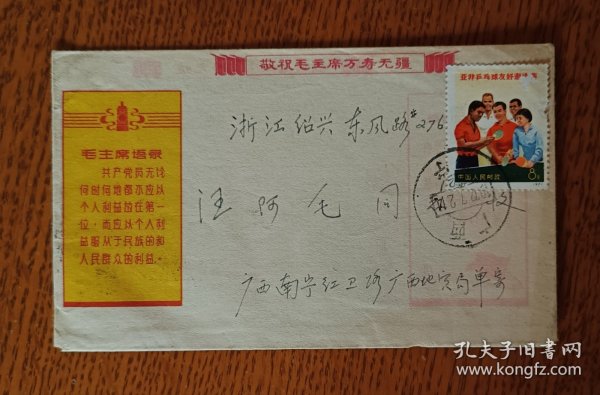 敬祝毛主席万寿无疆
亚非乒乓球友好邀请赛
浙江绍兴东风路#276
毛主席语录
共产党员无论
何时何地都不应以
个人利益放在第一
位，而应以个人利
益服从于民族的和
人民群众的利益。
中国人民邮政
8分
汪阿毛同
广西南宁红卫路广西地质局单寄
孔夫子旧书网
www.kongfz.com